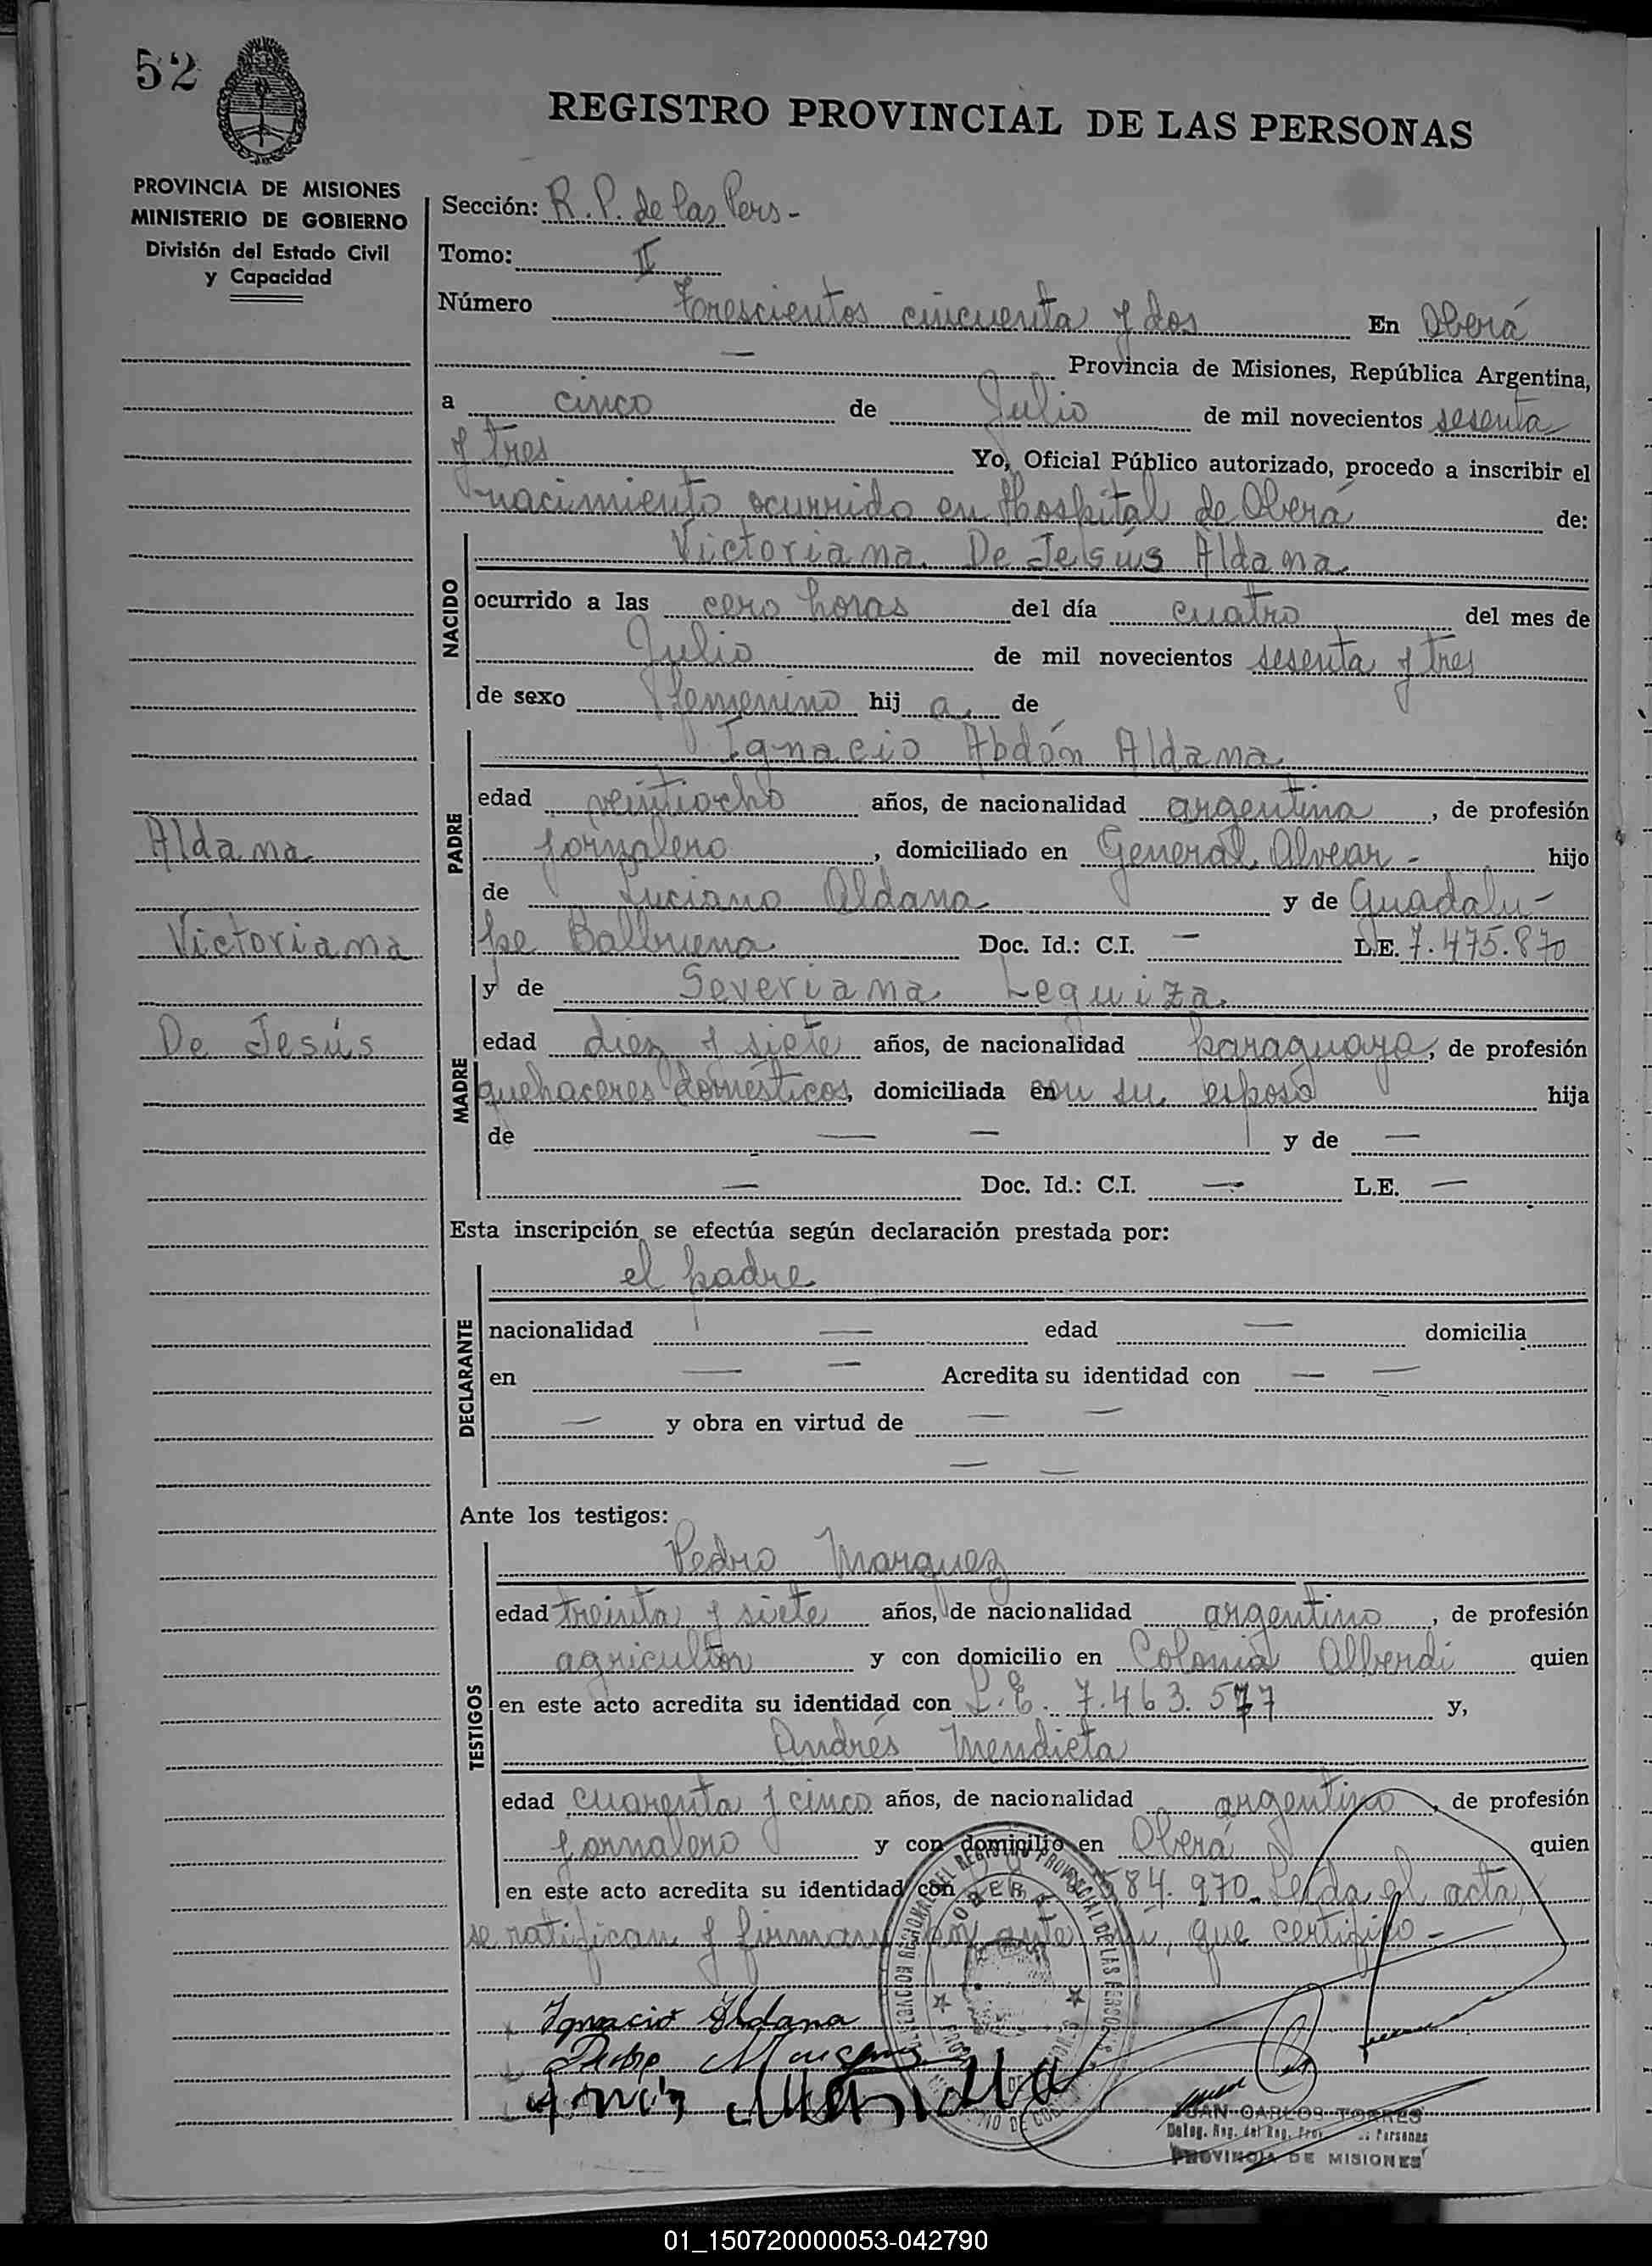 52
REGISTRO PROVINCIAL DE LAS PERSONAS
PROVINCIA DE MISIONES
MINISTERIO DE GOBIERNO
División del Estado Civil
y Capacidad
Sección: R. P. de las Pers-
Tomo: II
Número Trescientos cincuenta y dos En Oberá
— Provincia de Misiones, República Argentina,
a cinco de Julio de mil novecientos sesenta
y tres Yo, Oficial Público autorizado, procedo a inscribir el
nacimiento ocurrido en Hospital de Oberá de:
NACIDO
Victoriana De Jesús Aldana
ocurrido a las cero horas del día cuatro del mes de
Julio de mil novecientos sesenta y tres
de sexo femenino hij a de
PADRE
Ignacio Abdón Aldana
edad veintiocho años, de nacionalidad argentina, de profesión
jornalero, domiciliado en General Alvear - hijo
de Luciano Aldana y de Guadalu-
pe Balbuena Doc. Id.: C.I. — L.E. 7.475.870
Aldana
Victoriana
De Jesús
MADRE
y de Severiana Leguiza
edad diez y siete años, de nacionalidad paraguaya, de profesión
quehaceres domésticos, domiciliada en con su esposo hija
de — — y de —
— Doc. Id.: C.I. — L.E. —
Esta inscripción se efectúa según declaración prestada por:
DECLARANTE
el padre
nacionalidad — edad — domicilia
en — — Acredita su identidad con — —
— y obra en virtud de — —
— —
Ante los testigos:
TESTIGOS
Pedro Marquez
edad treinta y siete años, de nacionalidad argentino, de profesión
agricultor y con domicilio en Colonia Alberdi quien
en este acto acredita su identidad con L.E. 7.463.577 y,
Andrés Mendieta
edad cuarenta y cinco años, de nacionalidad argentino, de profesión
jornalero y con domicilio en Oberá quien
en este acto acredita su identidad con 84.970. Leída el acta,
se ratifican y firman por ante mí, que certifico -
Ignacio Aldana
Pedro Marquez
JUAN CARLOS TORRES
Deleg. Reg. del Reg. Prov. Personas
PROVINCIA DE MISIONES
OBERA
01_150720000053-042790